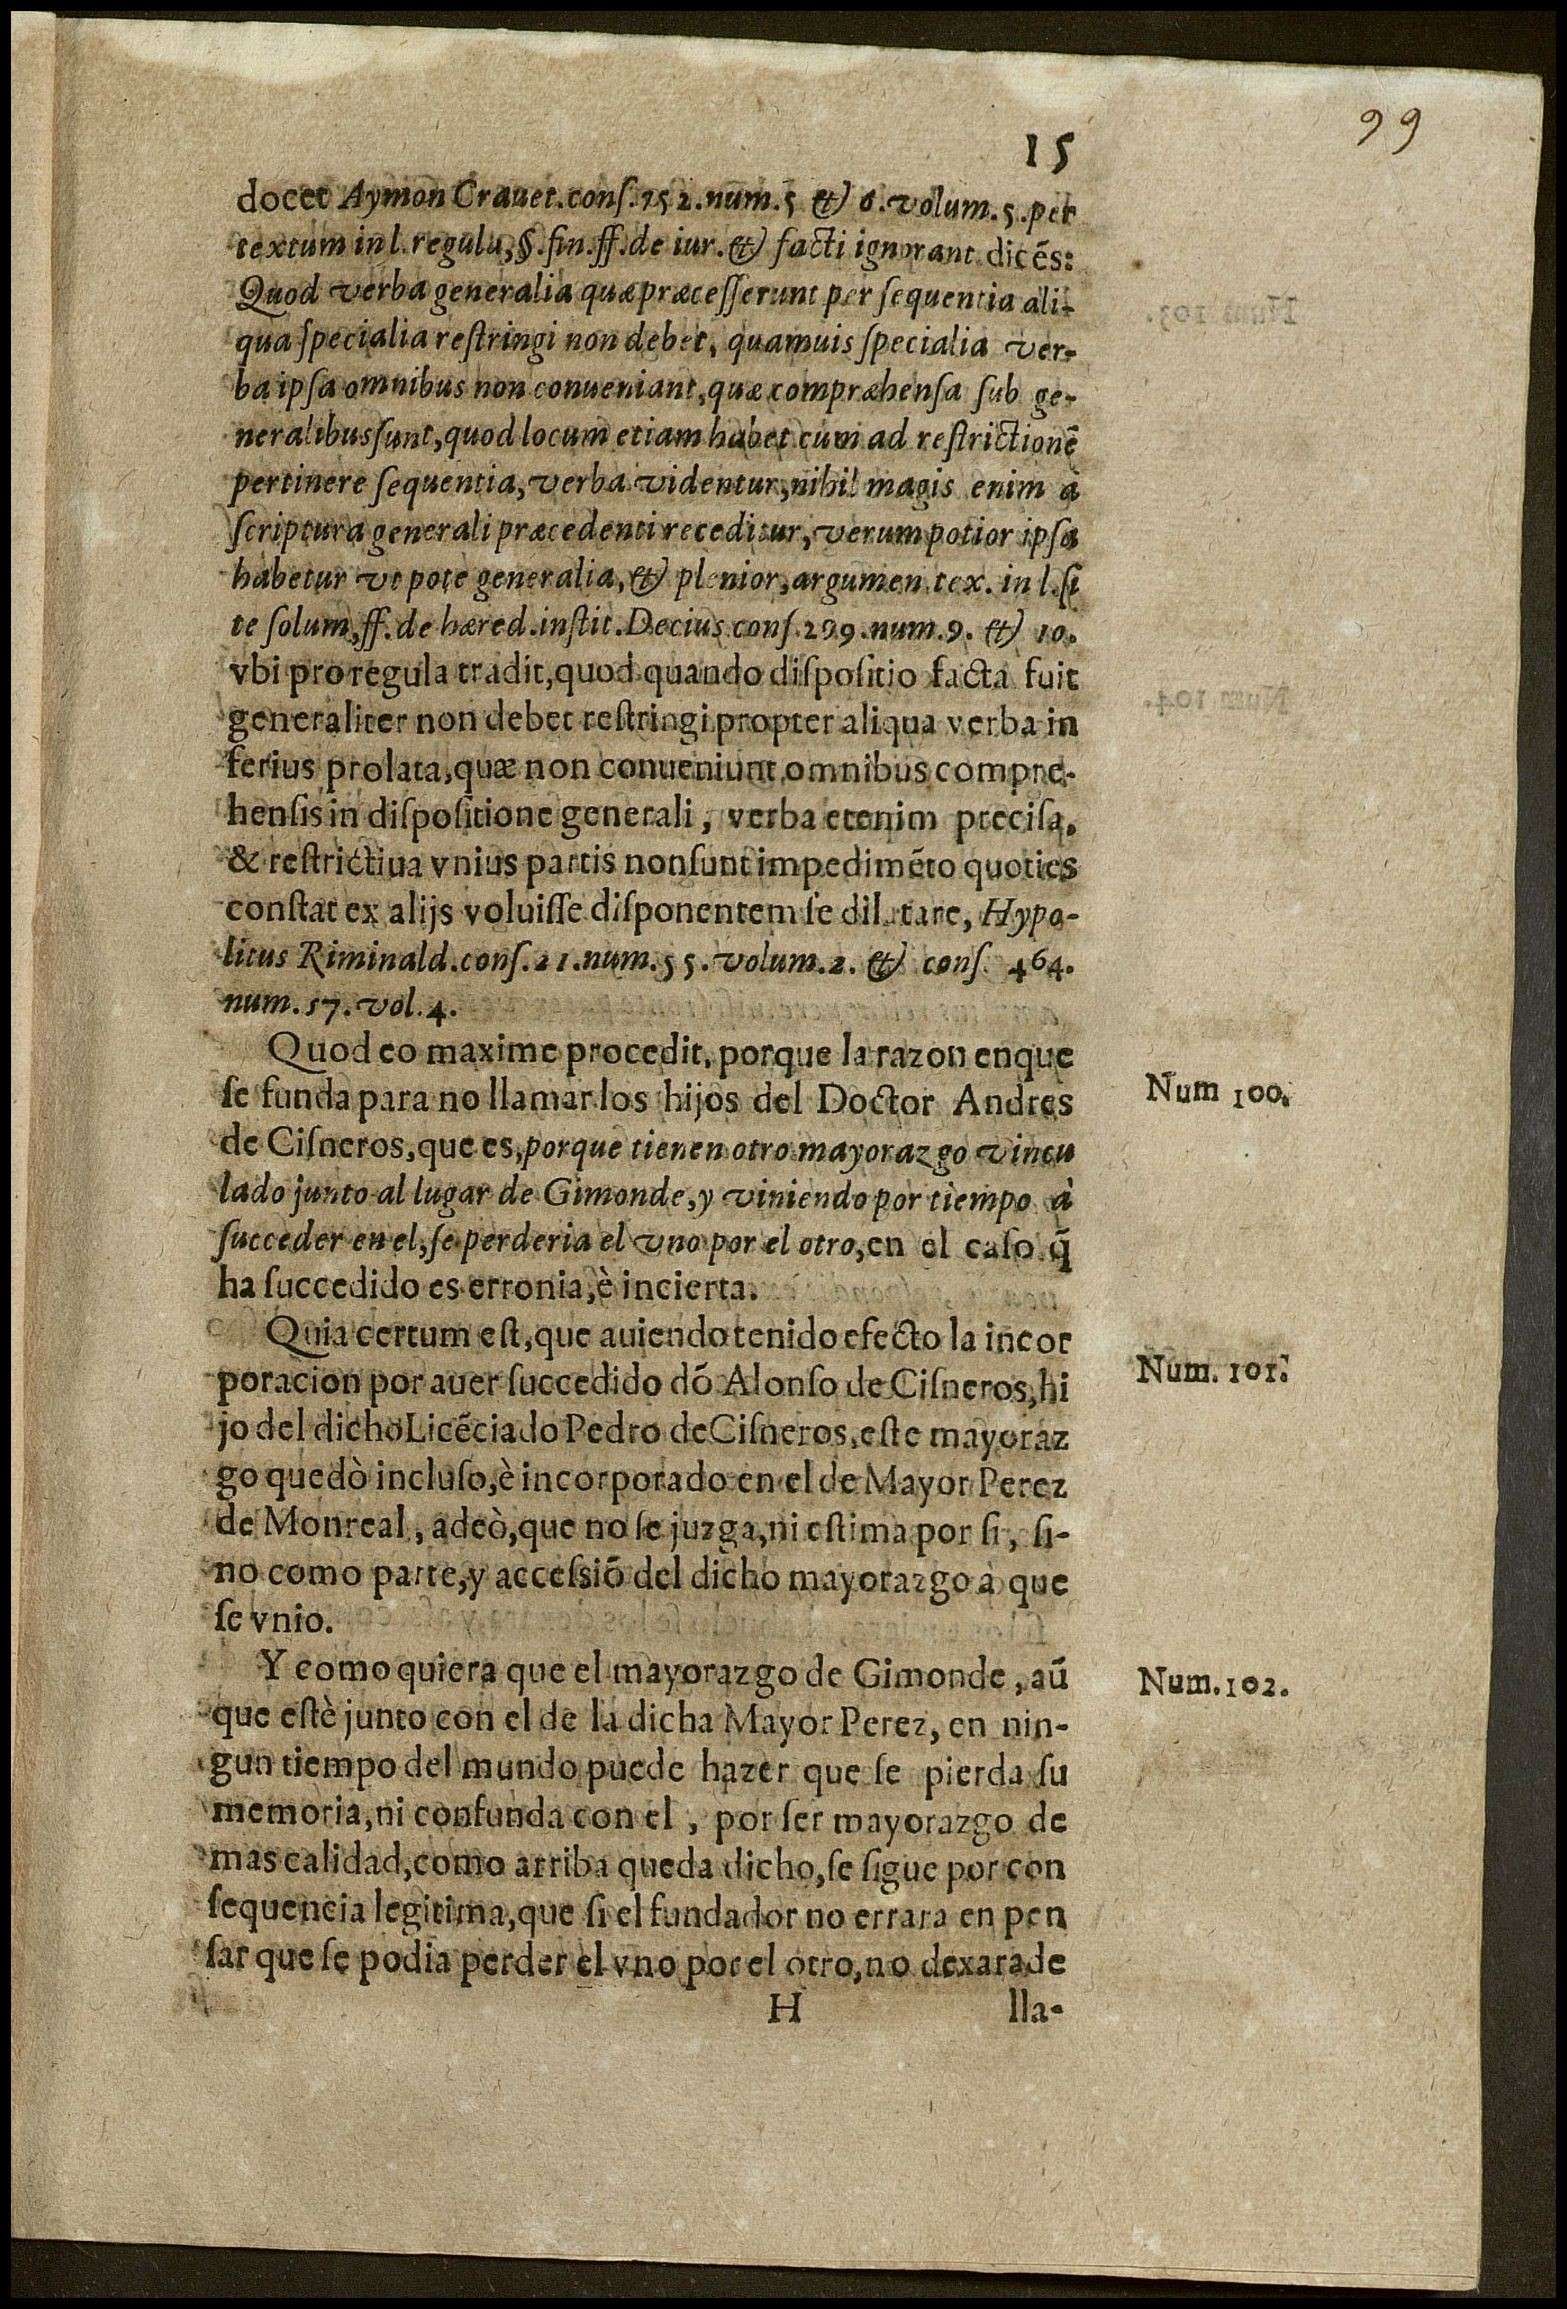 99
15
docet Aymon Crauet. conſ. 152. num. 5 & 6. volum. 5. per
textum in l. regula, §. fin. ff. de iur. & facti ignorant. dicẽs:
Quod verba generalia quæ præceſſerunt per ſequentia ali-
qua ſpecialia reſtringi non debet, quamuis ſpecialia ver-
ba ipſa omnibus non conueniant, quæ compræhenſa ſub ge-
neralibus ſunt, quod locum etiam habet cum ad reſtrictionẽ
pertinere ſequentia, verba videntur, nihil magis enim à
ſcriptura generali præcedenti receditur, verum potior ipſa
habetur vt pote generalia, & plenior, argumen. tex. in l. ſi
te ſolum, ff. de hæred. inſtit. Decius conſ. 299. num. 9. & 10.
vbi pro regula tradit, quod quando diſpoſitio facta fuit
generaliter non debet reſtringi propter aliqua verba in
ferius prolata, quæ non conueniunt omnibus compre-
henſis in diſpoſitione generali, verba etenim preciſa,
& reſtrictiua vnius partis non ſunt impedimẽto quoties
conſtat ex alijs voluiſſe diſponentem ſe dilatare, Hypo-
litus Riminald. conſ. 21. num. 55. volum. 2. & conſ. 464.
num. 57. vol. 4.
Quod eo maxime procedit, porque la razon en que
ſe funda para no llamar los hijos del Doctor Andres
Num 100.
de Ciſneros, que es, porque tienen otro mayorazgo vincu
lado junto al lugar de Gimonde, y viniendo por tiempo à
ſucceder en el, ſe perderia el vno por el otro, en el caſo q̃
ha ſuccedido es erronia, è incierta.
Quia certum eſt, que auiendo tenido efecto la incor
poracion por auer ſuccedido dõ Alonſo de Ciſneros, hi
Num. 101.
jo del dicho Licẽciado Pedro de Ciſneros, eſte mayoraz
go quedò incluſo, è incorporado en el de Mayor Perez
de Monreal, adeò, que no ſe juzga, ni eſtima por ſi, ſi-
no como parte, y acceſsiõ del dicho mayorazgo à que
ſe vnio.
Y como quiera que el mayorazgo de Gimonde, aũ
Num. 102.
que eſtè junto con el de la dicha Mayor Perez, en nin-
gun tiempo del mundo puede hazer que ſe pierda ſu
memoria, ni confunda con el, por ſer mayorazgo de
mas calidad, como arriba queda dicho, ſe ſigue por con
ſequencia legitima, que ſi el fundador no errara en pen
ſar que ſe podia perder el vno por el otro, no dexara de
H
lla-